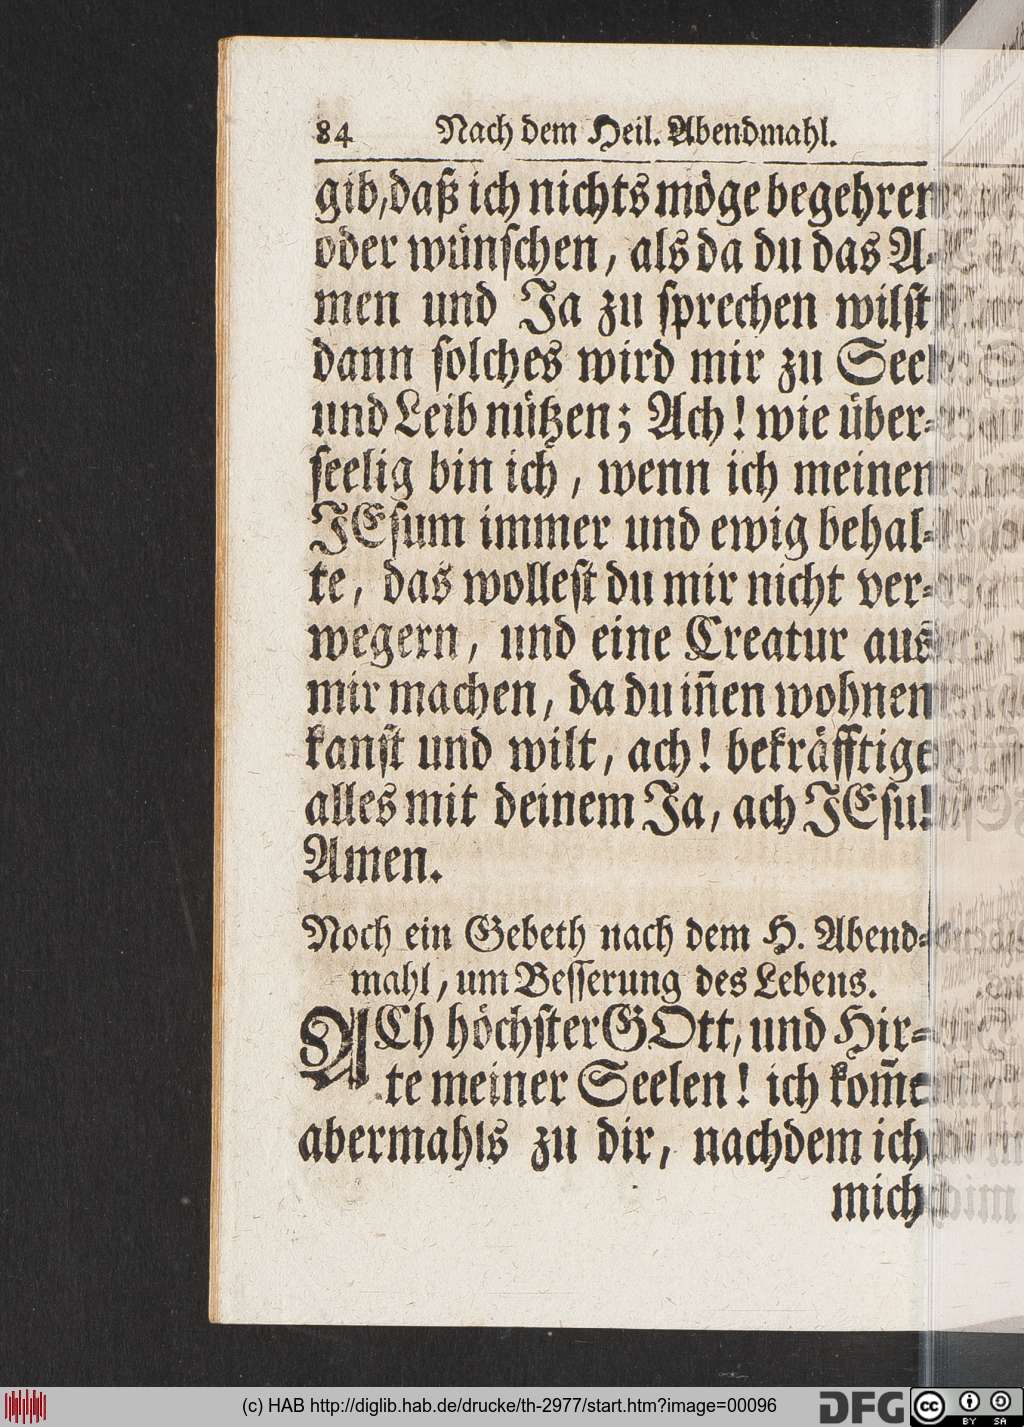 84 Nach dem Heil. Abendmahl.
gib, daß ich nichts möge begehren
oder wünschen, als da du das A-
men und Ja zu sprechen wilst
dann solches wird mir zu Seel
und Leib nützen; Ach! wie über-
seelig bin ich, wenn ich meinen
JEsum immer und ewig behal-
te, das wollest du mir nicht ver-
wegern, und eine Creatur aus
mir machen, da du iñen wohnen
kanst und wilt, ach! bekräfftige
alles mit deinem Ja, ach JEsu!
Amen.
Noch ein Gebeth nach dem H. Abend-
mahl, um Besserung des Lebens.
ACh höchster GOtt, und Hir-
te meiner Seelen! ich kom̃e
abermahls zu dir, nachdem ich
mich
(c) HAB http://diglib.hab.de/drucke/th-2977/start.htm?image=00096
DFG
cc BY SA